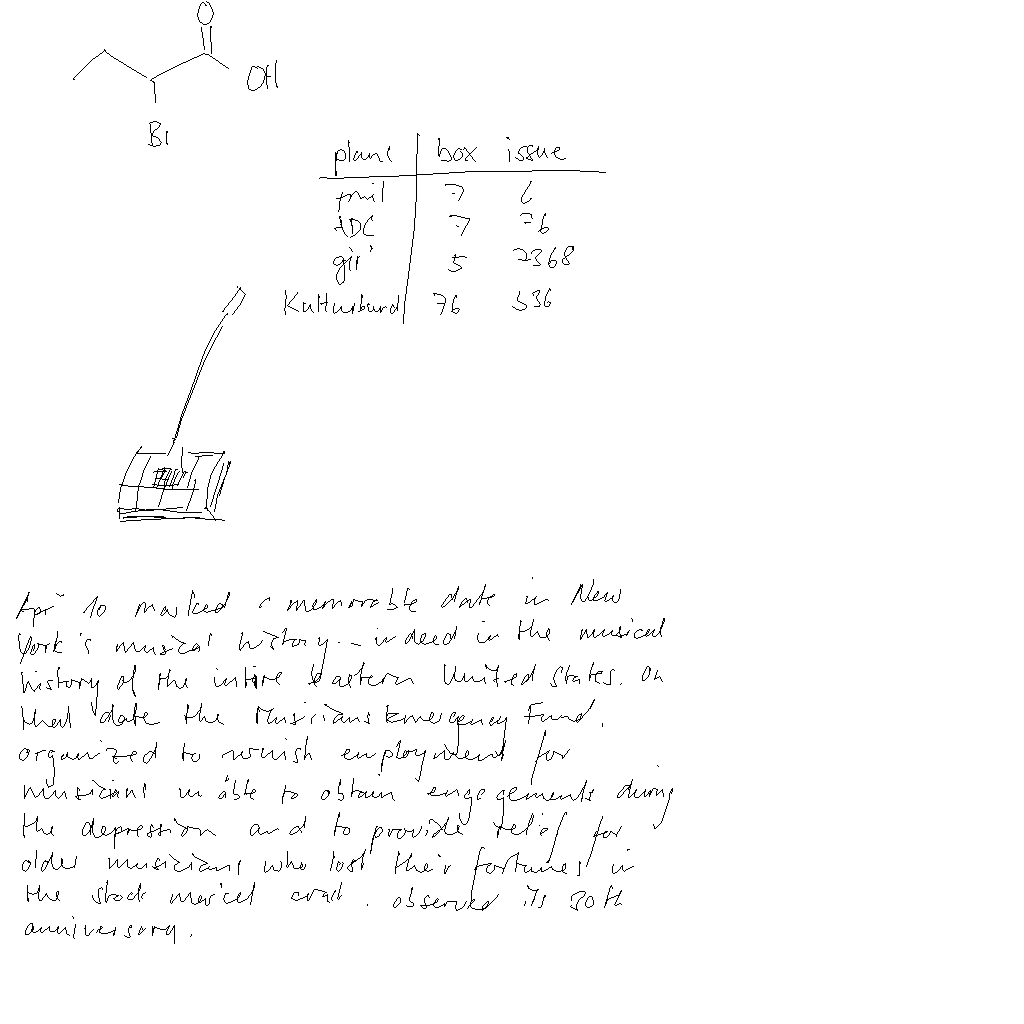 O
OH
Br
plane box issue
7 6
ADC 7 76
girl 5 2368
Kulturbund 76 536
Apr 10 marked a memorable date in New
York's musical history - indeed in the musical
history of the intire Eastern United States. On
that date the Musicians Emergency Fund,
organized to furnish employment for
musicians unable to obtain engagements during
the depression and to provide relief for
older musicians who lost their fortunes in
the stock market crash, observed its 30th
anniversary.